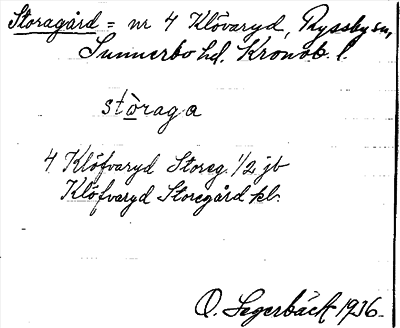 Storagård = nr 4 Klövaryd, Ryssby sn,
Sunnerbo hd. Kronob. l.
stòraga
4 Klöfvaryd Storeg. 1/2 jb
Klöfvaryd Storegård kb.
O. Segerbäck 1936.